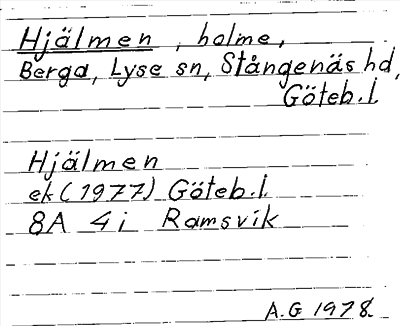 Hjälmen, holme,
Berga, Lyse sn, Stångenäs hd,
Göteb.l.
Hjälmen
ek (1977) Göteb.l.
8A 4i Ramsvik
A.G 1978.